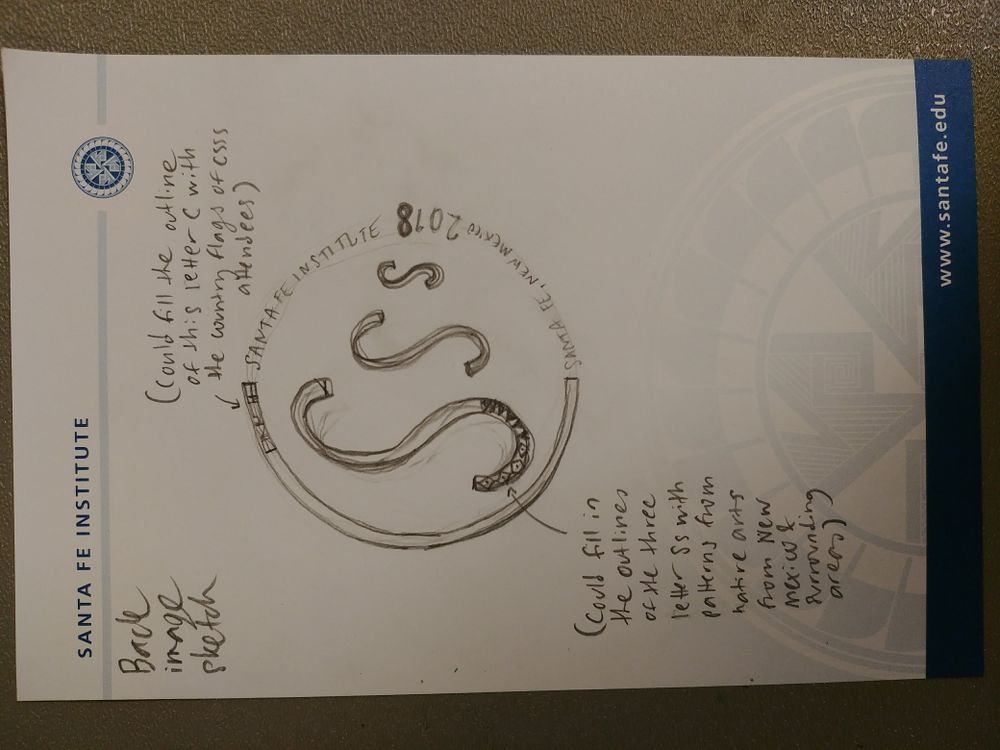 SANTA FE INSTITUTE
Back
image
sketch
(Could fill the outline
of this letter C with
the country flags of CSSS
attendees)
SANTA FE INSTITUTE
2018
SANTA FE, NEW MEXICO
S
S
S
(Could fill in
the outlines
of the three
letter Ss with
patterns from
native arts
from New
Mexico &
surrounding
areas)
www.santafe.edu